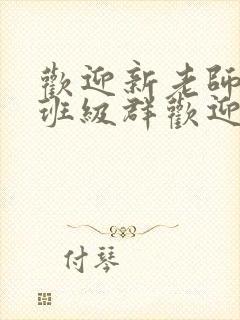 歡迎新老師
班級群歡迎
付琴